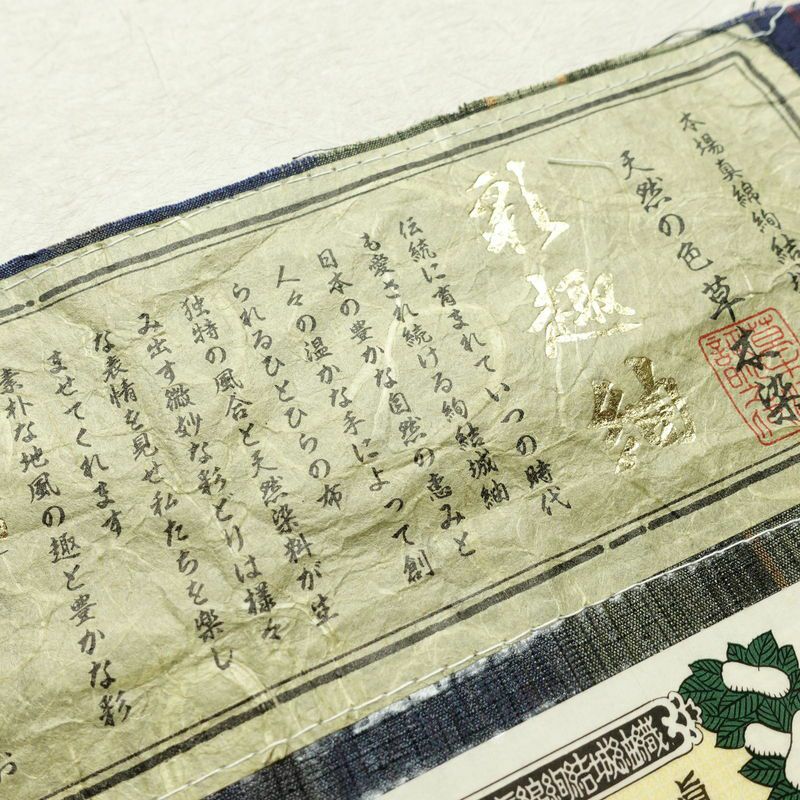 本場真綿絢結城
天然の色草木染
彩趣紬
伝統に育まれていつの時代
も愛され続ける絢結城紬
日本の豊かな自然の恵みと
人々の温かな手によって創
られるひとひらの布
独特の風合と天然染料が生
み出す微妙な彩どりは様々
な表情を見せ私たちを楽し
ませてくれます
素朴な地風の趣と豊かな彩
お
真綿絢結城紬織